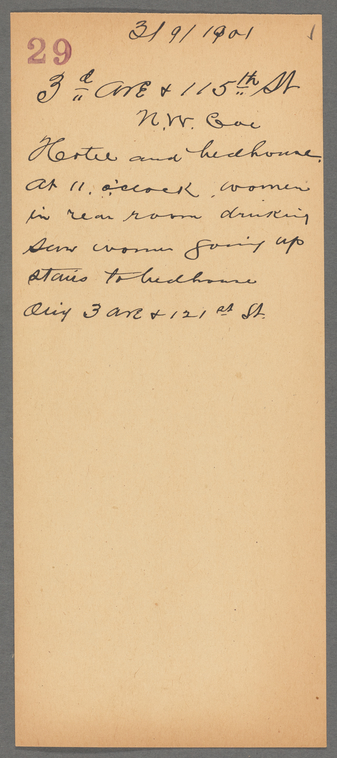 3/9/1901
29
3d Ave & 115th St
N.W. Cor
Hotel and bedhouse.
At 11. o'clock women
in rear room drinking
saw women going up
stairs to bedhouse
3 Ave & 121st St.